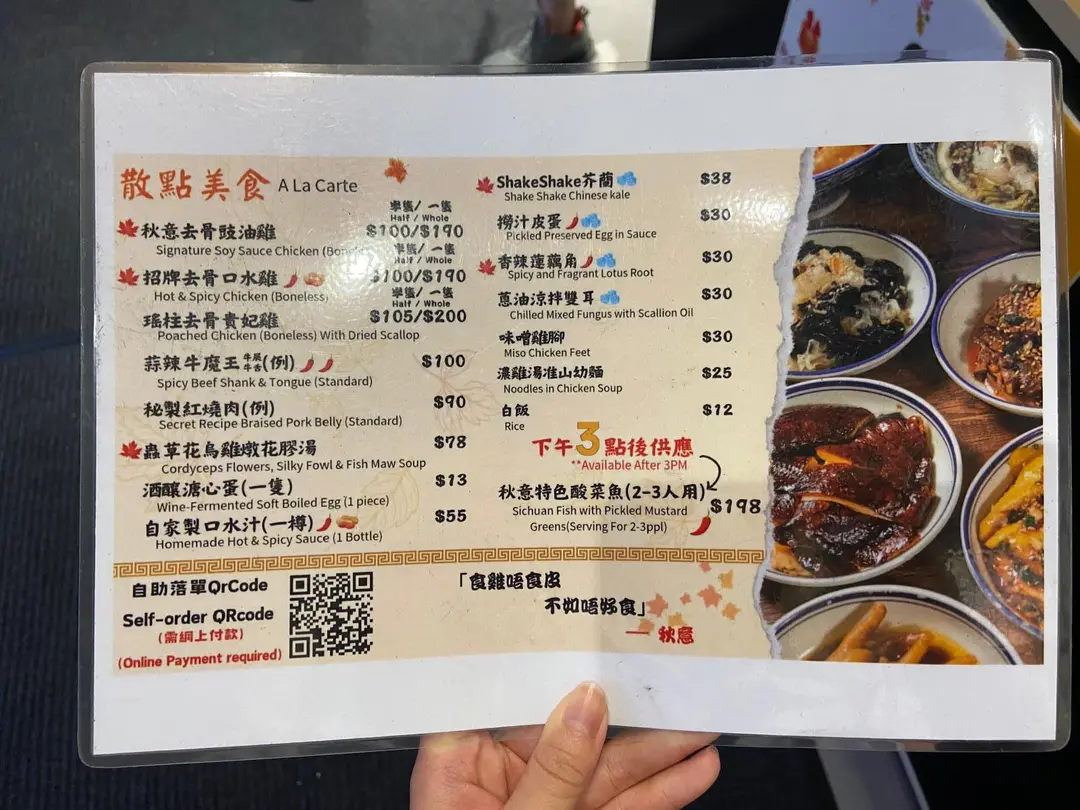 散點美食 A La Carte
半隻/ 一隻
Half / Whole
秋意去骨豉油雞 $100/$190
Signature Soy Sauce Chicken
半隻/ 一隻
Half / Whole
招牌去骨口水雞 $100/$190
Hot & Spicy Chicken (Boneless)
半隻/ 一隻
Half / Whole
瑤柱去骨貴妃雞 $105/$200
Poached Chicken (Boneless) With Dried Scallop
蒜辣牛魔王牛𦟌牛舌(例) $100
Spicy Beef Shank & Tongue (Standard)
秘製紅燒肉(例) $90
Secret Recipe Braised Pork Belly (Standard)
蟲草花烏雞燉花膠湯 $78
Cordyceps Flowers, Silky Fowl & Fish Maw Soup
酒釀溏心蛋(一隻) $13
Wine-Fermented Soft Boiled Egg (1 piece)
自家製口水汁(一樽) $55
Homemade Hot & Spicy Sauce (1 Bottle)
ShakeShake芥蘭 $38
Shake Shake Chinese kale
撈汁皮蛋 $30
Pickled Preserved Egg in Sauce
香辣蓮藕角 $30
Spicy and Fragrant Lotus Root
蔥油涼拌雙耳 $30
Chilled Mixed Fungus with Scallion Oil
味噌雞腳 $30
Miso Chicken Feet
濃雞湯淮山幼麵 $25
Noodles in Chicken Soup
白飯 $12
Rice
下午3點後供應
**Available After 3PM
秋意特色酸菜魚(2-3人用) $198
Sichuan Fish with Pickled Mustard
Greens(Serving For 2-3ppl)
自助落單QrCode
Self-order QRcode
(需網上付款)
(Online Payment required)
「食雞唔食皮
不如唔好食」
— 秋意